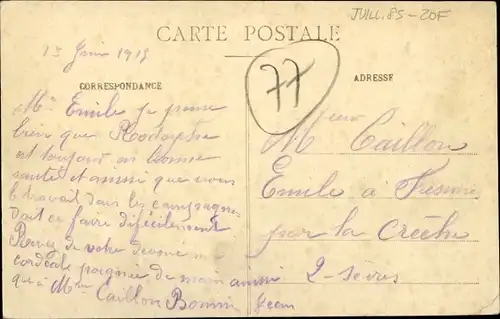 JUILL. 85 - 20F
CARTE POSTALE
15 Juin 1915
77
CORRESPONDANCE
ADRESSE
Mr Emile je pense
bien que
est toujours en bonne
santé et aussi que vous
le travail dans les campagnes
doit ce faire difécilement
Recevez de votre
cordéale poignée de main ainsi
que à Mme Caillon Bonnin Jean
Monsieur
Caillon
Emile a
par la Crèche
2-Sèvres